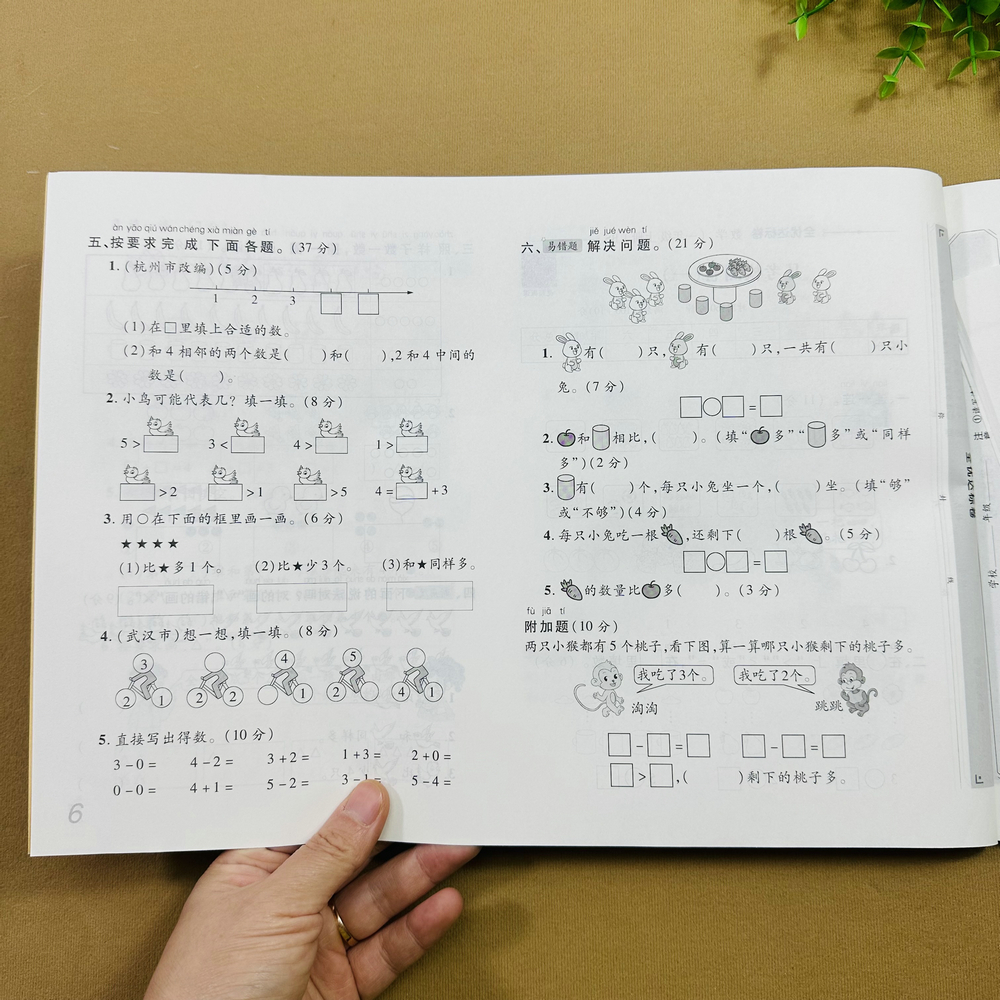 àn yāo qiú wán chéng xià miàn gè tí
五、按要求完成下面各题。(37分)
1.(杭州市改编)(5分)
1 2 3 □ □
(1)在□里填上合适的数。
(2)和4相邻的两个数是( )和( ),2和4中间的
数是( )。
2.小鸟可能代表几? 填一填。(8分)
5>□ 3<□ 4>□ 1>□
□>2 □>1 □>5 4=□+3
3.用○在下面的框里画一画。(6分)
★★★★
(1)比★多1个。 (2)比★少3个。 (3)和★同样多。
4.(武汉市)想一想,填一填。(8分)
3 4 5
2 1 2 2 1 2 4 1
5.直接写出得数。(10分)
3-0= 4-2= 3+2= 1+3= 2+0=
0-0= 4+1= 5-2= 3-1= 5-4=
6
jiě jué wèn tí
六、易错题 解决问题。(21分)
1. 有( )只, 有( )只,一共有( )只小
兔。(7分)
□○□=□
2. 和 相比,( )。(填“ 多”“ 多”或“同样
多”)(2分)
3. 有( )个,每只小兔坐一个,( )坐。(填“够”
或“不够”)(4分)
4.每只小兔吃一根 ,还剩下( )根 。(5分)
□○□=□
5. 的数量比 多( )。(3分)
fù jiā tí
附加题(10分)
两只小猴都有5个桃子,看下图,算一算哪只小猴剩下的桃子多。
我吃了3个。 我吃了2个。
淘淘 跳跳
□-□=□ □-□=□
□>□,( )剩下的桃子多。
学校
年级